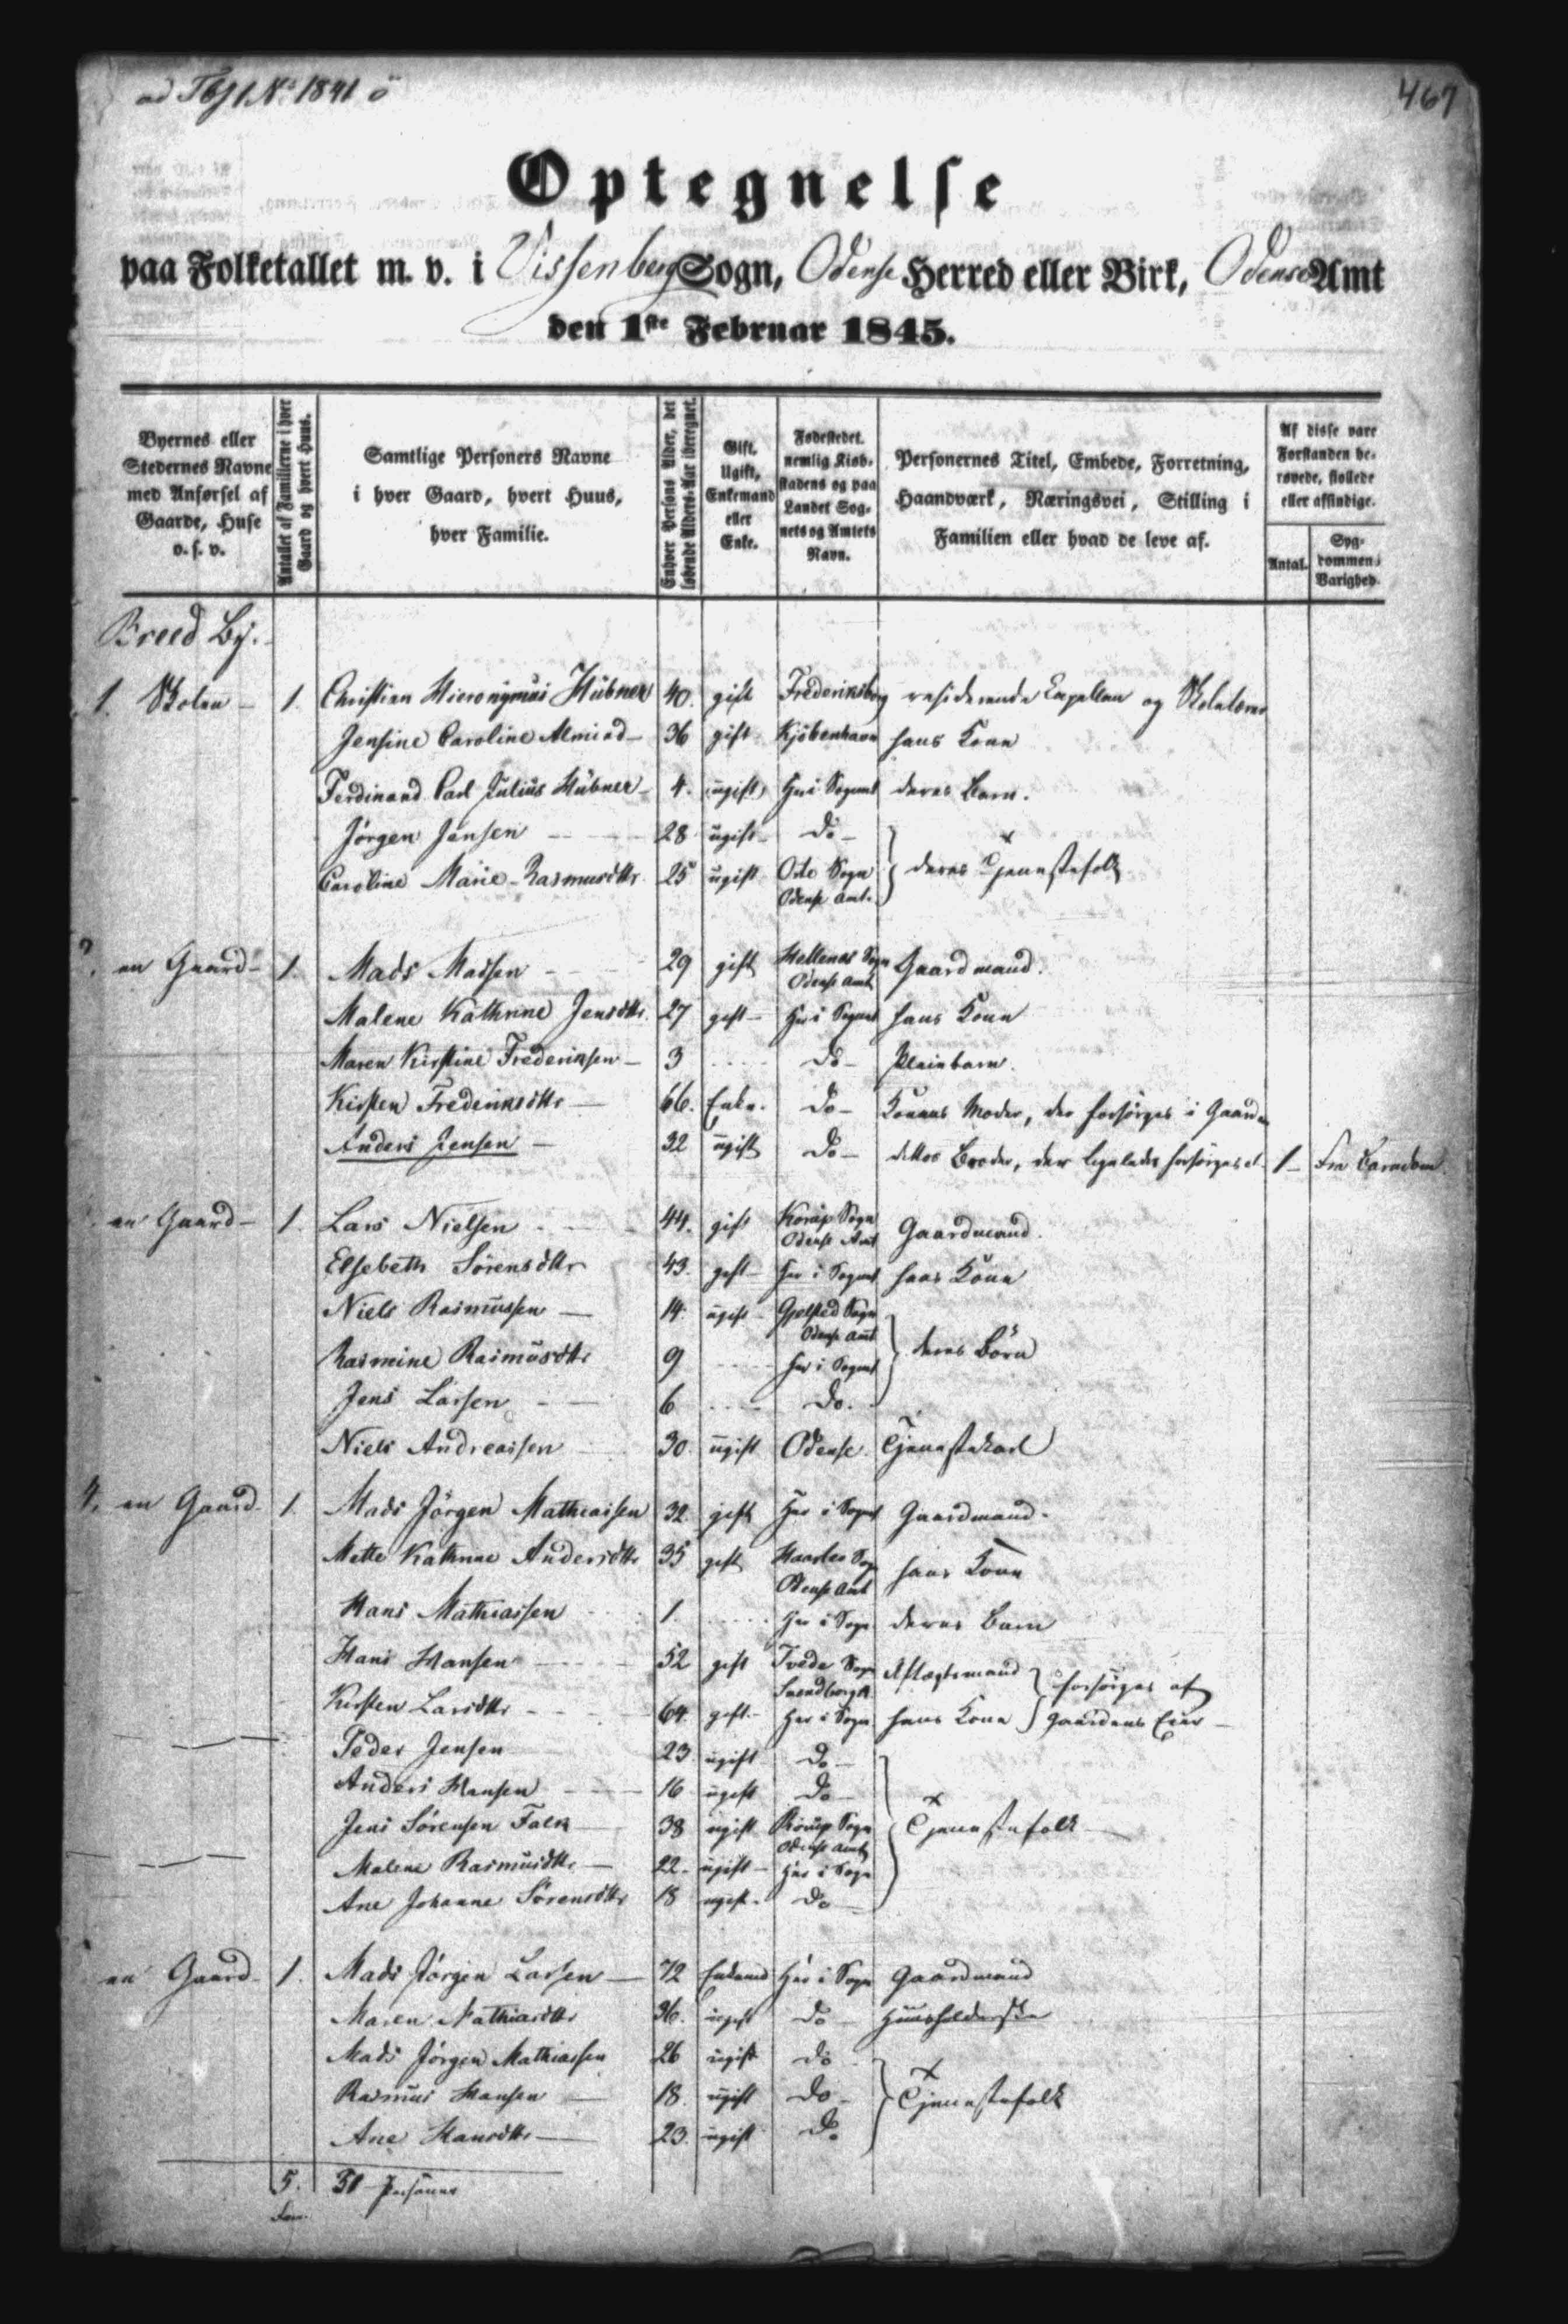 467
Optegnelse
paa Folketallet m. v. i Vissenberg Sogn, Odense Herred eller Birk, Odense Amt
den 1ste Februar 1845.
Byernes eller Stedernes Navne med Anførsel af Gaarde, Huse o. s. v.
Antallet af Familierne i hver Gaard og hvert Huus.
Samtlige Personers Navne i hver Gaard, hvert Huus, hver Familie.
Enhver Persons Alder, det løbende Alders-Aar iberegnet.
Gift, Ugift, Enkemand eller Enke.
Fødestedet, nemlig Kiøbstadens og paa Landet Sognets og Amtets Navn.
Personernes Titel, Embede, Forretning, Haandværk, Næringsvei, Stilling i Familien eller hvad de leve af.
Af disse vare Forstanden berøvede, fiollede eller affindige.
Antal.
Sygdommens Varighed.
Breed By.
1. Skolen - 1. Christian Hieronymus Hübner 40. gift Frederiksberg residerende Capellan og Skolelærer
Jensine Caroline 36 gift Kjöbenhavn hans Kone
Ferdinand Carl Julius Hübner - 4. ugift Her i Sognet deres Barn.
Jørgen Jensen 28 ugift - do -
Caroline Marie Rasmusdttr 25 ugift Sogn Odense Amt. deres Tjenestefolk
en Gaard - 1. Mads Madsen 29 gift Sogn Odense Amt Gaardmand.
Malene Kathrine Jensdttr. 27 gift - Her i Sognet hans Kone
Maren Kirstine Frederiksen - 3 do - Pleiebarn.
Kirsten Frederiksdttr - 66. Enke. do - Konens Moder, der forsørges i Gaarden
Anders Jensen - 32 ugift do - dettos Broder, der ligeledes forsørges 1 - fra Barndom
en Gaard - 1. Lars Nielsen 44. gift Korup Sogn Odense Amt Gaardmand.
Elsebeth Sørensdttr 43. gift - Her i Sognet hans Kone
Niels Rasmussen - 14. ugift Gjelsted Sogn Odense Amt
Rasmine Rasmusdttr 9 her i Sognet deres Börn
Jens Larsen 6 do.
Niels Andreassen 30. ugift Odense. Tjenestekarl
4. en Gaard. 1. Mads Jørgen Mathiassen 32. gift Her i Sognet Gaardmand.
Mette Kathrine Andersdttr 35 gift Haarslev Sogn Odense Amt hans Kone
Hans Mathiassen 1. Her i Sogn deres Barn
Hans Hansen 52 gift Tvede Sogn Svendborg A. Aftægtsmand forsørges af
Kirsten Larsdttr 64. gift - Her i Sogn hans Kone Gaardens Eier -
Peder Jensen 23 ugift do -
Anders Hansen 16 ugift do -
Jens Sørensen Falk 38 ugift Rörup Sogn Odense Amt Tjenestefolk
Malene Rasmusdttr - 22. ugift - Her i Sogn
Ane Johanne Sørensdttr 18 ugift. do -
en Gaard - 1. Mads Jørgen Larsen - 72 Enkemd Her i Sogn Gaardmand
Maren Mathiasdttr 36. ugift do - Huusholderske
Mads Jørgen Mathiassen 26 ugift do
Rasmus Hansen 18. ugift do - Tjenestefolk
Ane Hansdttr - 23. ugift do
5. Fam. 31 Personer